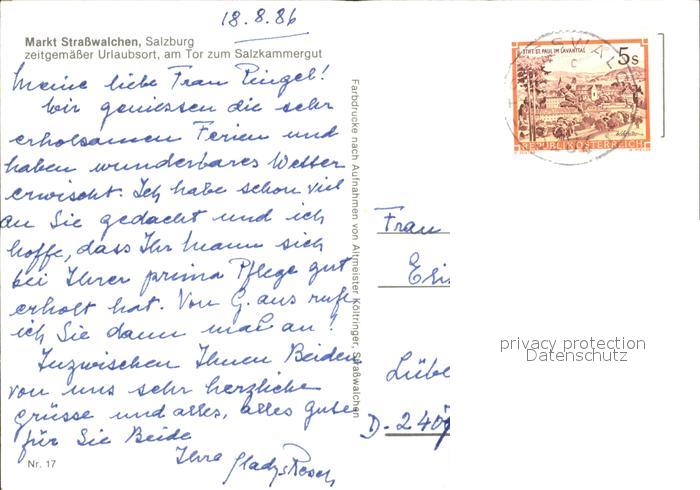 18.8.86
Markt Straßwalchen, Salzburg
zeitgemäßer Urlaubsort, am Tor zum Salzkammergut
Meine liebe Frau Pingel!
Wir geniessen die sehr
erholsamen Ferien und
haben wunderbares Wetter
erwischt. Ich habe schon viel
an Sie gedacht und ich
hoffe, dass Ihr Mann sich
bei Ihrer prima Pflege gut
erholt hat. Von G. aus rufe
ich Sie dann mal an!
Inzwischen Ihnen Beiden
von uns sehr herzliche
Grüsse und alles, alles Gute
für Sie Beide
Ihre Gladys
Nr. 17
Farbdrucke nach Aufnahmen von Altmeister Költringer, Straßwalchen
STIFT ST. PAUL IM LAVANTTAL
5 s
REPUBLIK ÖSTERREICH
Frau
Lübe
D-240
privacy protection
Datenschutz